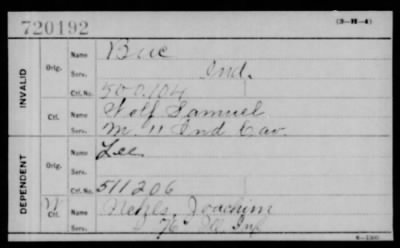 720192
(3-H-4)
INVALID
Orig.
Name Buc
Serv. Ind.
Ctf. No. 500.104
Ctf.
Name Wolf Samuel
Serv. M. 11 Ind Cav.
DEPENDENT
Orig.
Name Lee
Serv.
Ctf. No. 511206
W
Ctf.
Name Nehls, Joachim
Serv. 76 Ill Inf